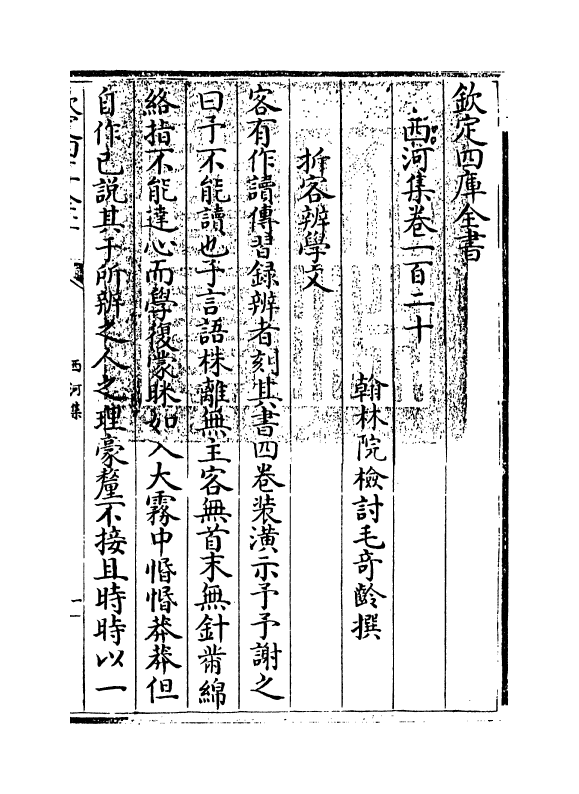 欽定四庫全書
西河集卷一百二十
翰林院檢討毛奇齡撰
折客辨學文
客有作讀傳習録辨者刻其書四卷装潢示予予謝之
曰予不能讀也予言語株離無主客無首末無針黹綿
絡指不能達心而學復蒙昧如入大霧中惛惛莽莽但
自作已説其于所辨之人之理豪釐不接且時時以一
西河集
一